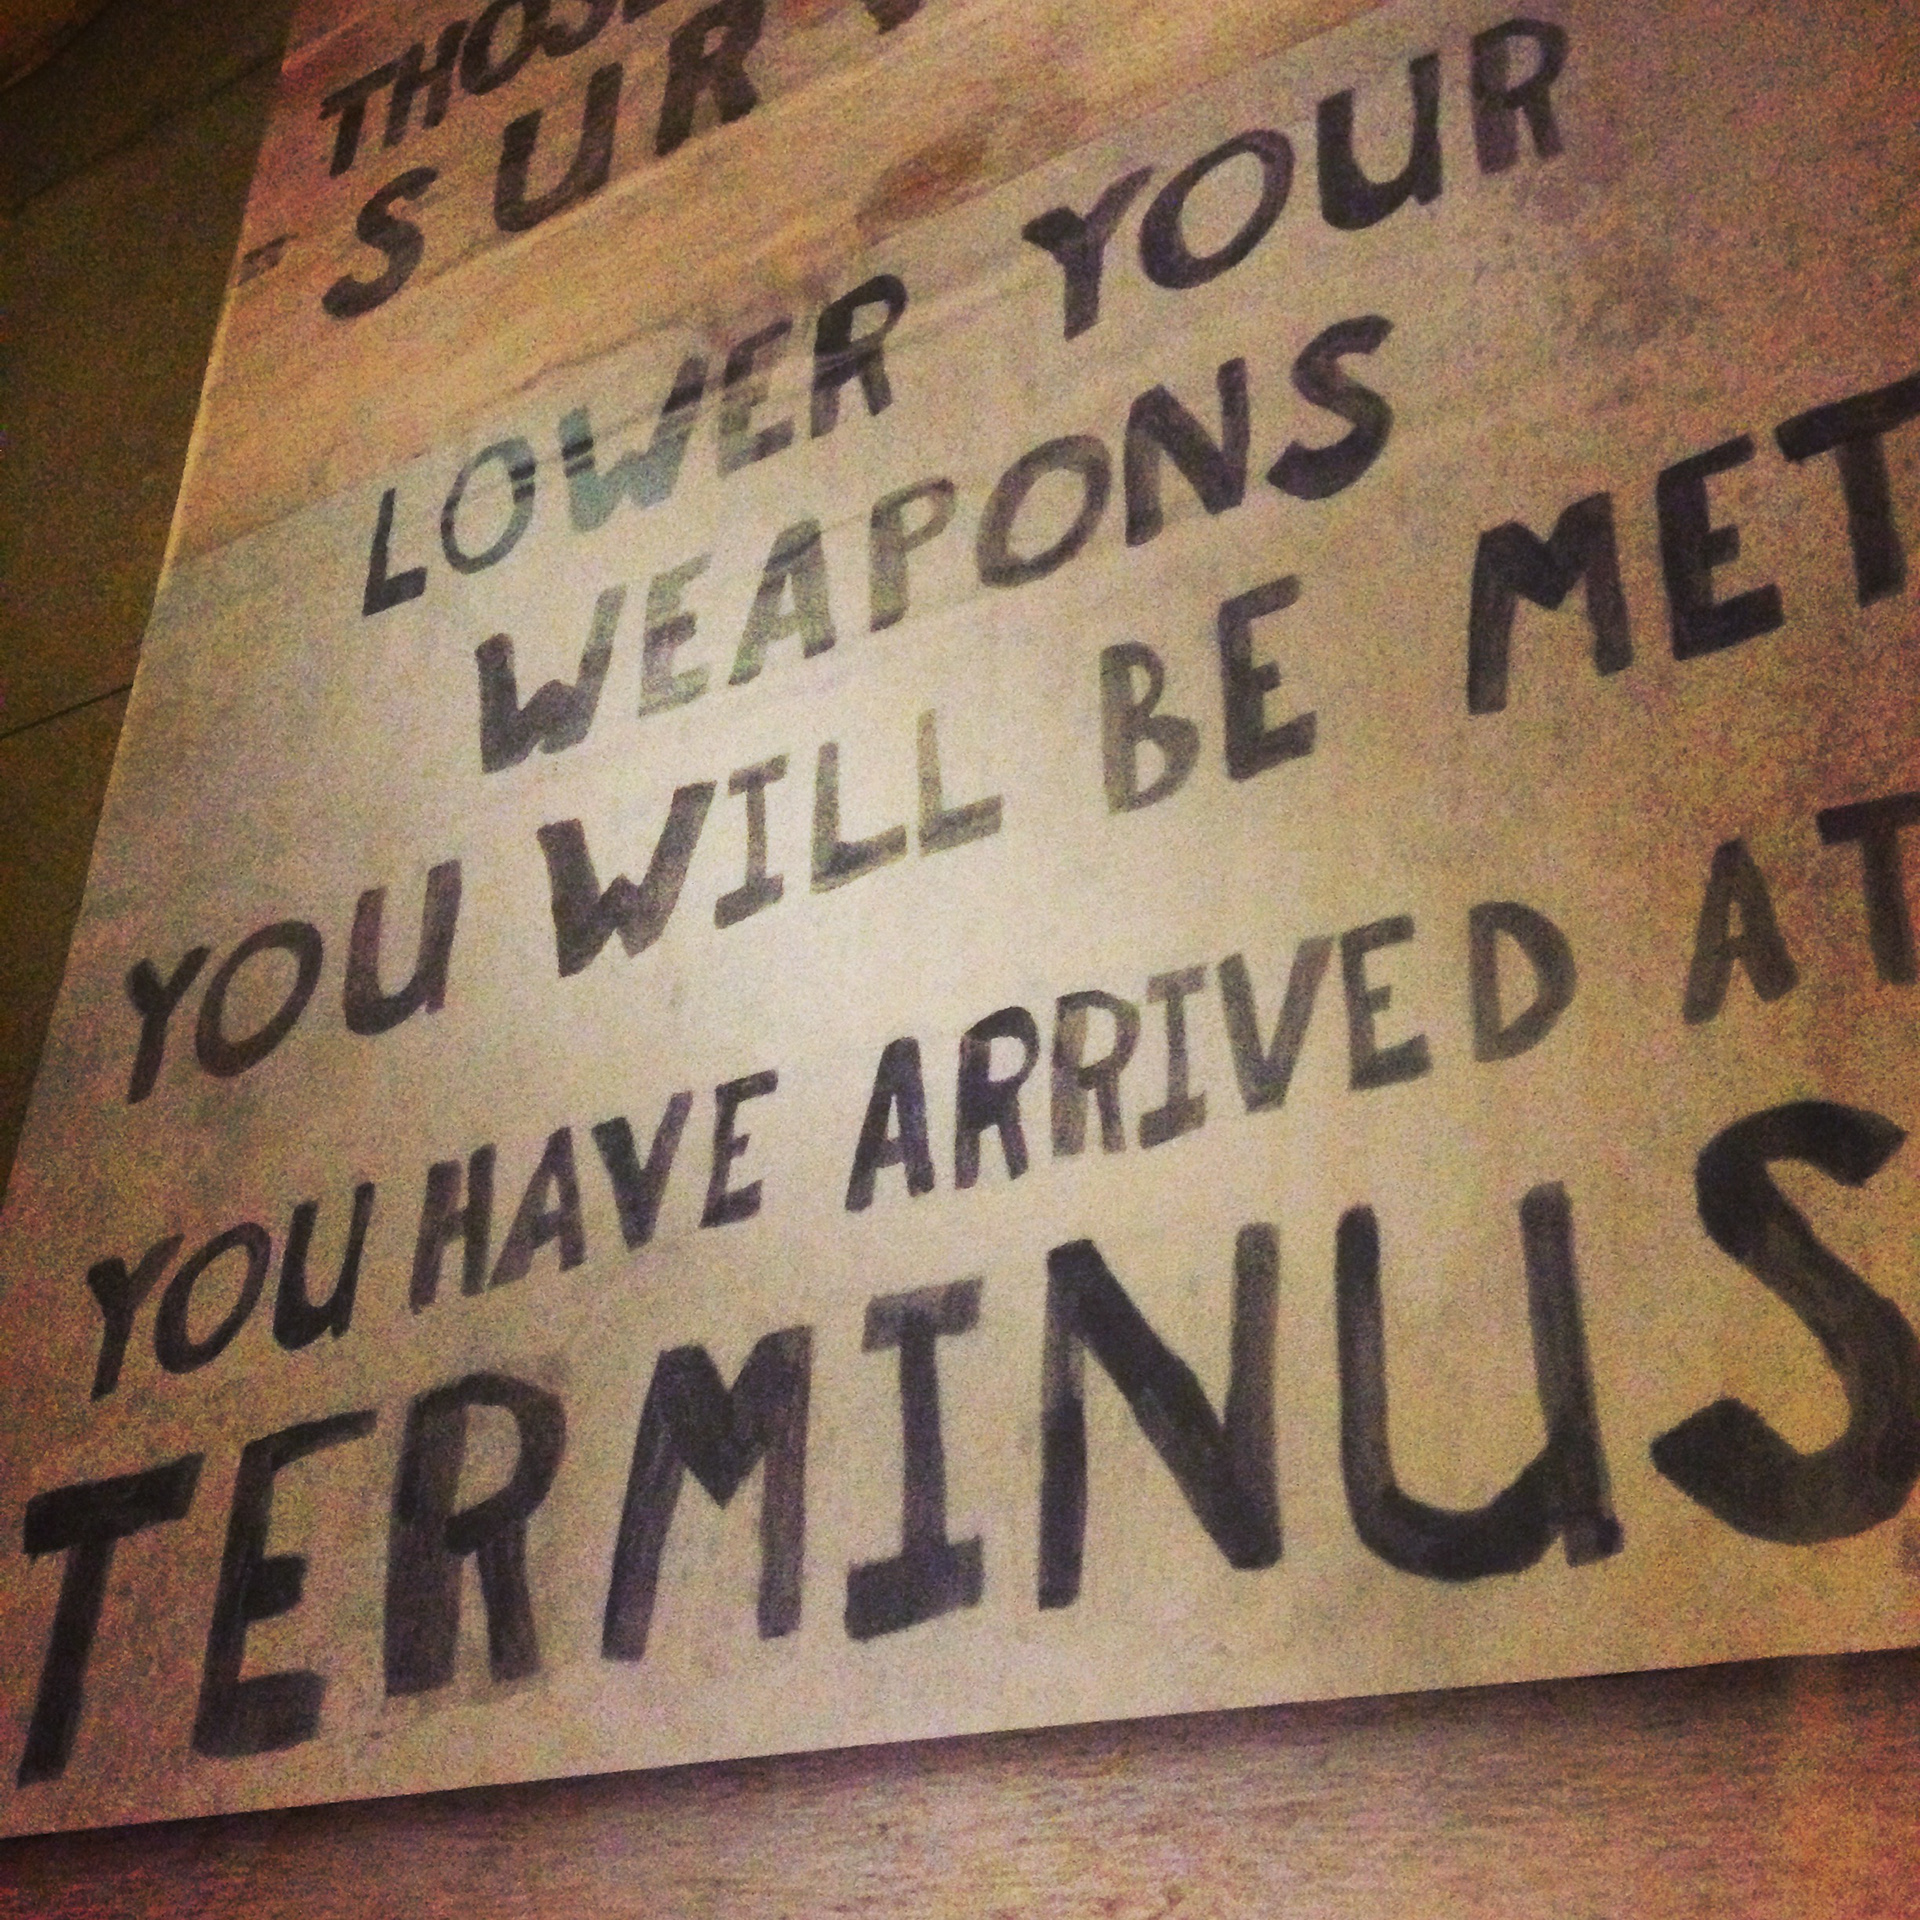 THOSE
SURV
LOWER YOUR
WEAPONS
YOU WILL BE MET
YOU HAVE ARRIVED AT
TERMINUS